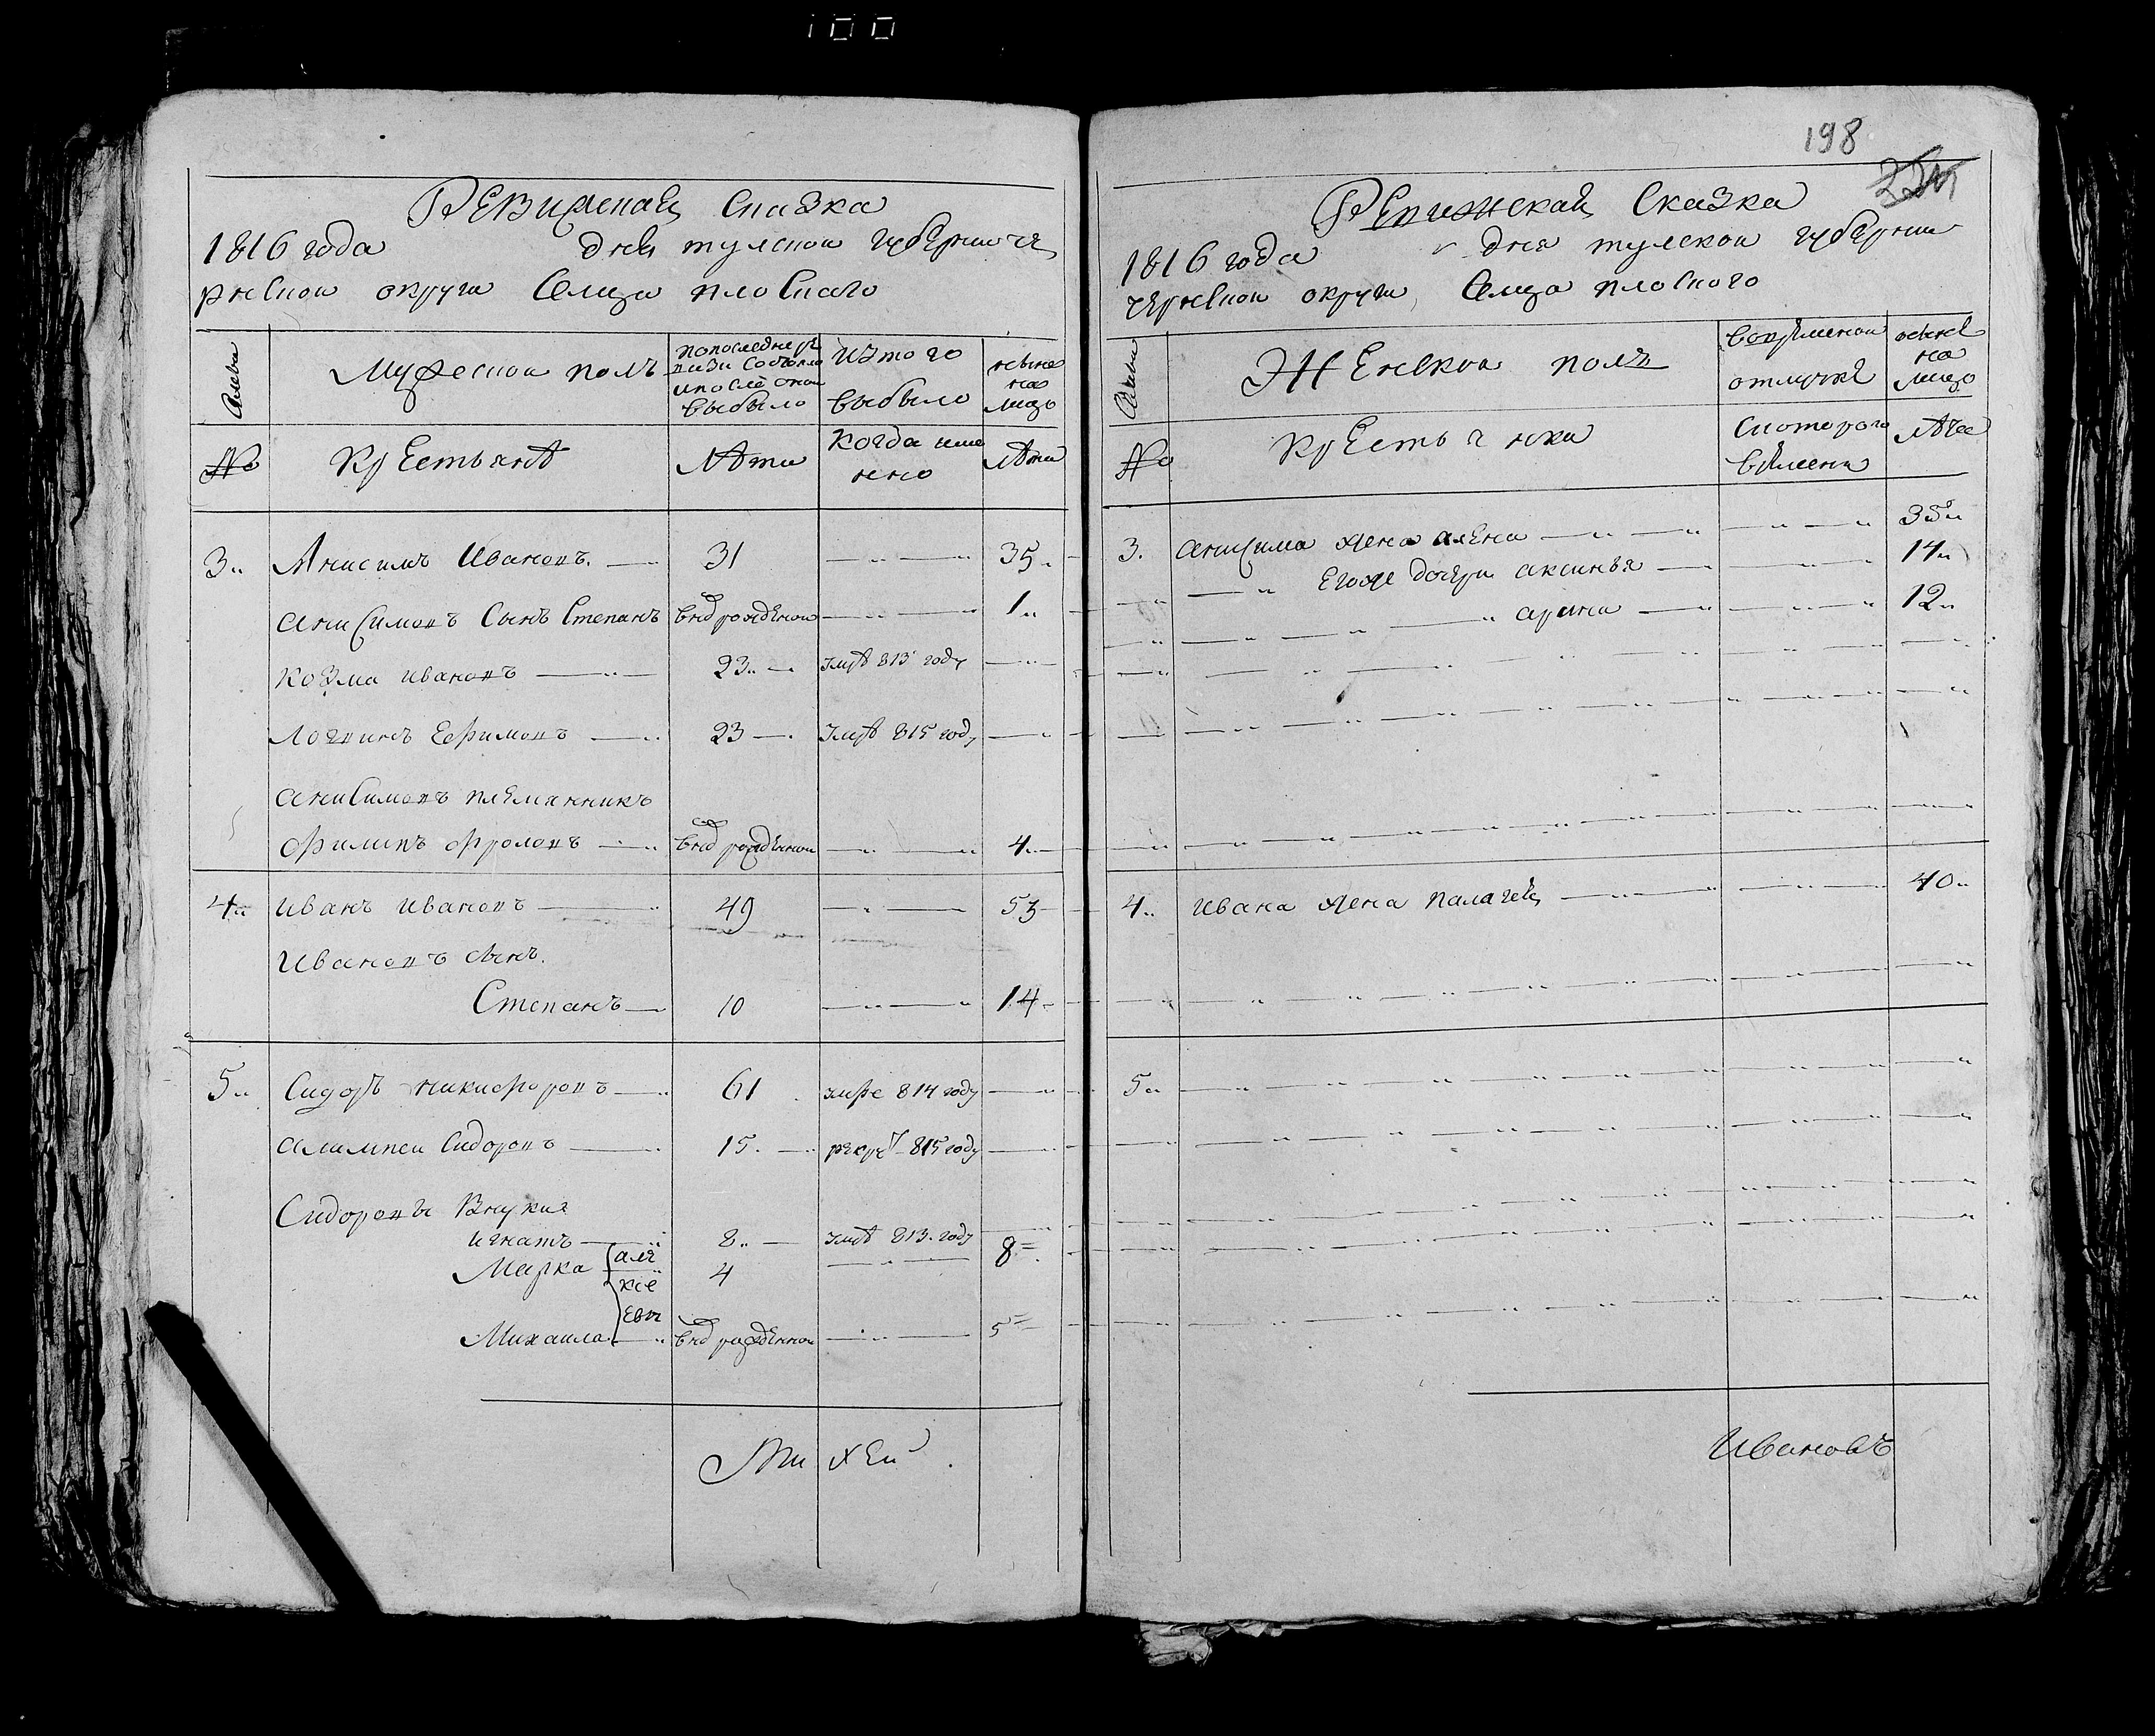 100
Ревижская Сказка
1816 года дня тулской губернии че
рнской округи Селца плоского
Семьи
Мужеской полъ
по последней ре
визи состояло
и после оной
выбыло
изъ того
выбыло
ныне
на
лицо
№
Крестьянѣ
Лѣты
когда име
нно
Лѣты
3 Анисимъ Ивановъ 31 35
Анисимовъ Сынъ Степанъ внорожденной 1
Козма Ивановъ 23 умрѣ 813 году
Логвинъ Ефимовъ 23 умрѣ 815 году
Анисимовъ племянникъ
Филипъ Фроловъ внорожденной 4
4 Иванъ Ивановъ 49 53
Ивановъ сынъ
Степанъ 10 14
5 Сидоръ Никифоровъ 61 умре 814 году
Алимпей Сидоровъ 15 рекру 815 году
Сидоровы Внуки
Игнатъ 8 умрѣ 813 году
Марка 4 8
алѣ
ксе
евы
Михаила внорожденной 5
Михей
198
Ревижская Сказка
1816 года дня тулской губернии
чернской округи Селца плоского
Семьи
Женской полъ
во временной
отлучкѣ
ныне
на
лицо
№
Крестьянки
с которого
времени
лѣта
3. Анисима жена алена 35
Егоже дочери аксинья 14
арина 12
4 Ивана жена палагея 40
5
Ивановъ